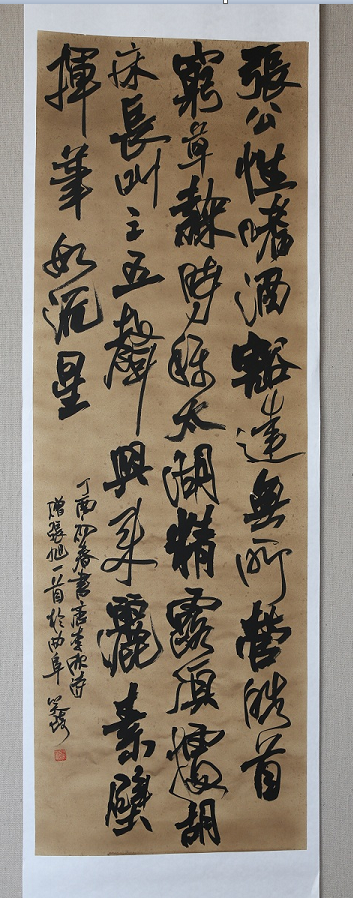 張公性嗜酒豁達無所營皓首
窮草隸時稱太湖精露頂據胡
床長叫三五聲興來灑素壁
揮筆如流星
丁酉初春書唐李頎詩
贈張旭一首於曲阜